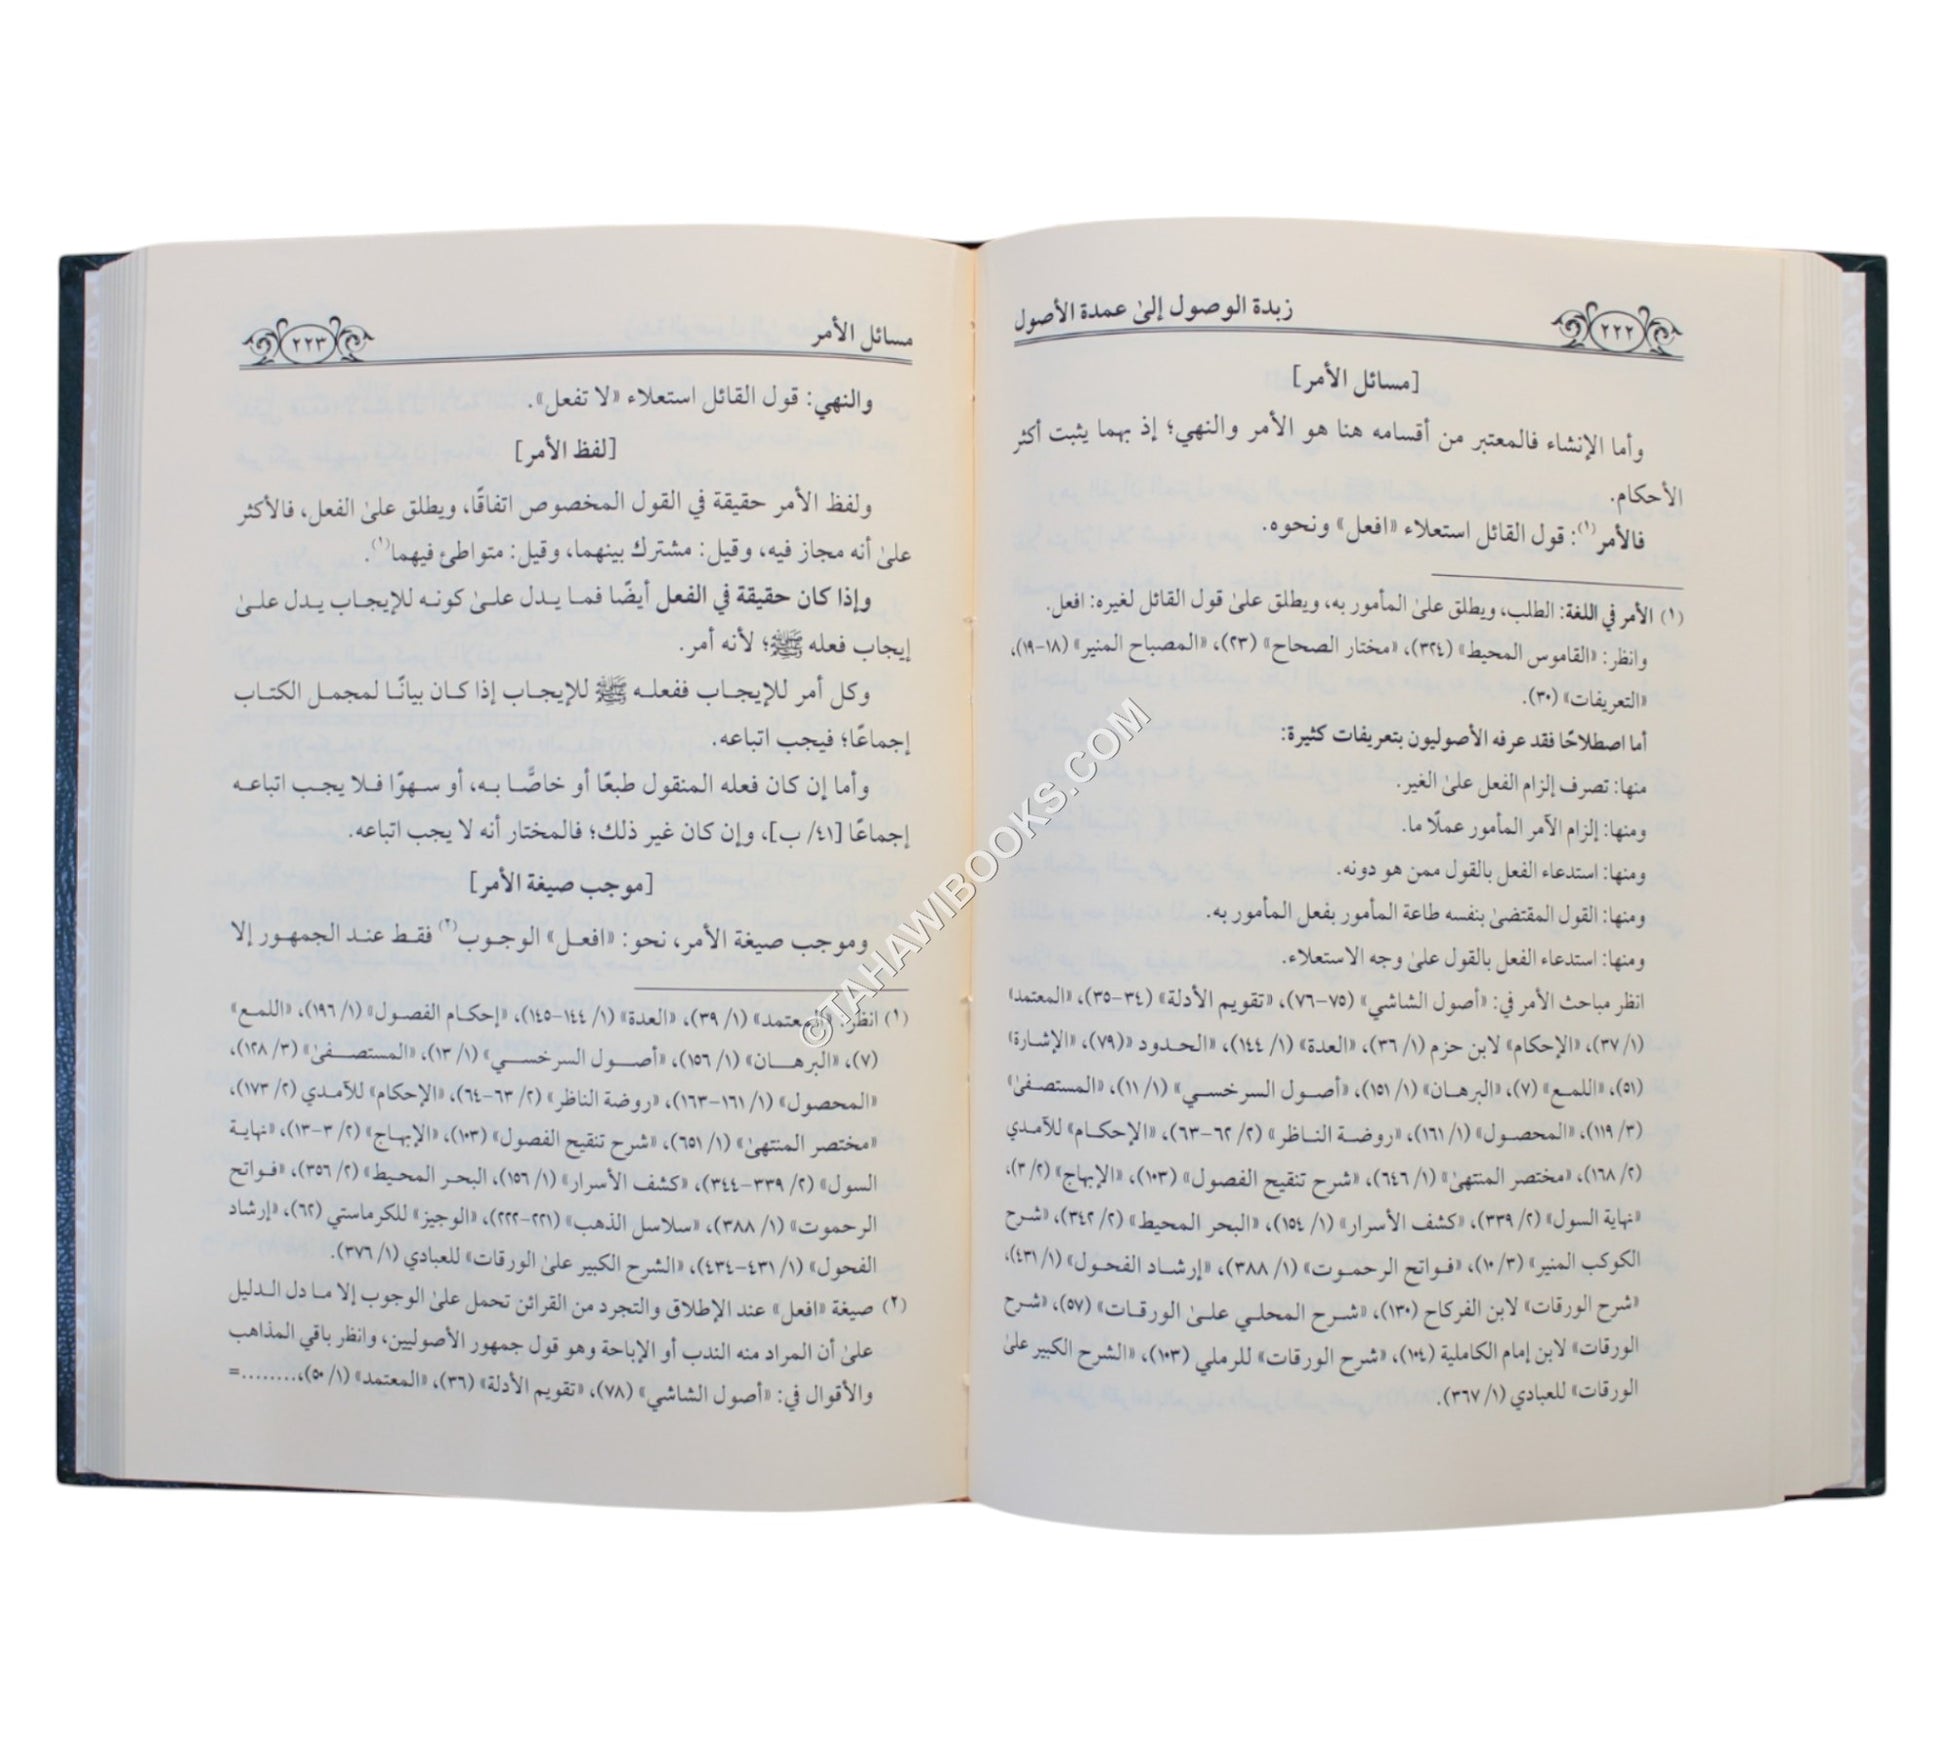 ٢٢٢
زبدة الوصول إلىٰ عمدة الأصول
[مسائل الأمر]
وأما الإنشاء فالمعتبر من أقسامه هنا هو الأمر والنهي؛ إذ بهما يثبت أكثر
الأحكام.
فالأمر(١): قول القائل استعلاء «افعل» ونحوه.
(١) الأمر في اللغة: الطلب، ويطلق علىٰ المأمور به، ويطلق علىٰ قول القائل لغيره: افعل.
وانظر: «القاموس المحيط» (٣٢٤)، «مختار الصحاح» (٢٣)، «المصباح المنير» (١٨-١٩)،
«التعريفات» (٣٠).
أما اصطلاحًا فقد عرفه الأصوليون بتعريفات كثيرة:
منها: تصرف إلزام الفعل علىٰ الغير.
ومنها: إلزام الآمر المأمور عملًا ما.
ومنها: استدعاء الفعل بالقول ممن هو دونه.
ومنها: القول المقتضىٰ بنفسه طاعة المأمور بفعل المأمور به.
ومنها: استدعاء الفعل بالقول علىٰ وجه الاستعلاء.
انظر مباحث الأمر في: «أصول الشاشي» (٧٥-٧٦)، «تقويم الأدلة» (٣٤-٣٥)، «المعتمد»
(١/ ٣٧)، «الإحكام» لابن حزم (١/ ٣٦)، «العدة» (١/ ١٤٤)، «الحدود «(٧٩)، «الإشارة»
(٥١)، «اللمع» (٧)، «البرهان» (١/ ١٥١)، «أصول السرخسي» (١/ ١١)، «المستصفىٰ»
(٣/ ١١٩)، «المحصول» (١/ ١٦١)، «روضة الناظر» (٢/ ٦٢-٦٣)، «الإحكام» للآمدي
(٢/ ١٦٨)، «مختصر المنتهىٰ» (١/ ٦٤٦)، «شرح تنقيح الفصول» (١٠٣)، «الإبهاج» (٢/ ٣)،
«نهاية السول» (٢/ ٣٣٩)، «كشف الأسرار» (١/ ١٥٤)، «البحر المحيط» (٢/ ٣٤٢)، «شرح
الكوكب المنير» (٣/ ١٠)، «فواتح الرحموت» (١/ ٣٨٨)، «إرشاد الفحول» (١/ ٤٣١)،
«شرح الورقات» لابن الفركاح (١٣٠)، «شرح المحلي علىٰ الورقات» (٥٧)، «شرح
الورقات» لابن إمام الكاملية (١٠٤)، «شرح الورقات» للرملي (١٠٣)، «الشرح الكبير علىٰ
الورقات» للعبادي (١/ ٣٦٧).
مسائل الأمر
٢٢٣
والنهي: قول القائل استعلاء «لا تفعل».
[لفظ الأمر]
ولفظ الأمر حقيقة في القول المخصوص اتفاقًا، ويطلق علىٰ الفعل، فالأكثر
علىٰ أنه مجاز فيه، وقيل: مشترك بينهما، وقيل: متواطئ فيهما(١).
وإذا كان حقيقة في الفعل أيضًا فما يدل علىٰ كونه للإيجاب يدل علىٰ
إيجاب فعله ﷺ؛ لأنه أمر.
وكل أمر للإيجاب ففعله ﷺ للإيجاب إذا كان بيانًا لمجمل الكتاب
إجماعًا؛ فيجب اتباعه.
وأما إن كان فعله المنقول طبعًا أو خاصًّا به، أو سهوًا فلا يجب اتباعه
إجماعًا [٤١/ ب]، وإن كان غير ذلك؛ فالمختار أنه لا يجب اتباعه.
[موجب صيغة الأمر]
وموجب صيغة الأمر، نحو: «افعل» الوجوب(٢) فقط عند الجمهور إلا
(١) انظر: «المعتمد» (١/ ٣٩)، «العدة» (١/ ١٤٤-١٤٥)، «إحكام الفصول» (١/ ١٩٦)، «اللمع»
(٧)، «البرهان» (١/ ١٥٦)، «أصول السرخسي» (١/ ١٣)، «المستصفىٰ» (٣/ ١٢٨)،
«المحصول» (١/ ١٦١-١٦٣)، «روضة الناظر» (٢/ ٦٣-٦٤)، «الإحكام» للآمدي (٢/ ١٧٣)،
«مختصر المنتهىٰ» (١/ ٦٥١)، «شرح تنقيح الفصول» (١٠٣)، «الإبهاج» (٢/ ٣-١٣)، «نهاية
السول» (٢/ ٣٣٩-٣٤٤)، «كشف الأسرار» (١/ ١٥٦)، البحر المحيط» (٢/ ٣٥٦)، «فواتح
الرحموت» (١/ ٣٨٨)، «سلاسل الذهب» (٢٢١-٢٢٢)، «الوجيز» للكرماستي (٦٢)، «إرشاد
الفحول» (١/ ٤٣١-٤٣٤)، «الشرح الكبير علىٰ الورقات» للعبادي (١/ ٣٧٦).
(٢) صيغة «افعل» عند الإطلاق والتجرد من القرائن تحمل علىٰ الوجوب إلا ما دل الدليل
علىٰ أن المراد منه الندب أو الإباحة وهو قول جمهور الأصوليين، وانظر باقي المذاهب
والأقوال في: «أصول الشاشي» (٧٨)، «تقويم الأدلة» (٣٦)، «المعتمد» (١/ ٥٠)،........=
©TAHAWIBOOKS.COM